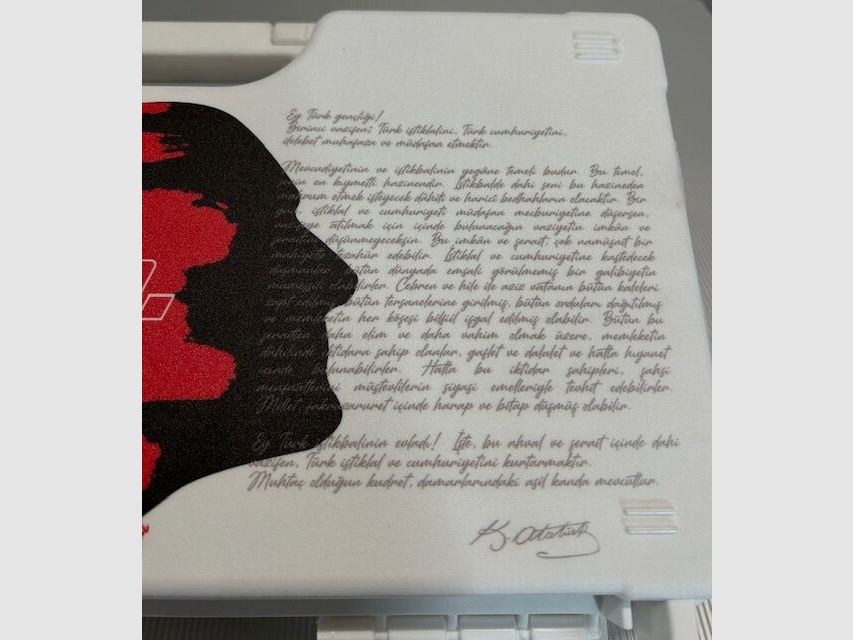 Ey Türk gençliği!
Birinci vazifen; Türk istiklalini, Türk cumhuriyetini,
ilelebet muhafaza ve müdafaa etmektir.
Mevcudiyetinin ve istikbalinin yegâne temeli budur. Bu temel,
en kıymetli hazinendir. İstikbalde dahi seni bu hazineden
mahrum etmek isteyecek dâhilî ve haricî bedhahların olacaktır. Bir
gün, istiklal ve cumhuriyeti müdafaa mecburiyetine düşersen,
vazifeye atılmak için içinde bulunacağın vaziyetin imkân ve
şeraitini düşünmeyeceksin. Bu imkân ve şerait, çok namüsait bir
mahiyette tezahür edebilir. İstiklal ve cumhuriyetine kastedecek
düşmanlar bütün dünyada emsali görülmemiş bir galibiyetin
mümessili olabilirler. Cebren ve hile ile aziz vatanın bütün kaleleri
zapt edilmiş bütün tersanelerine girilmiş, bütün orduları dağıtılmış
ve memleketin her köşesi bilfiil işgal edilmiş olabilir. Bütün bu
şeraitten daha elim ve daha vahim olmak üzere, memleketin
dahilinde iktidara sahip olanlar, gaflet ve dalalet ve hatta hıyanet
içinde bulunabilirler. Hatta bu iktidar sahipleri, şahsi
menfaatlerini müstevlilerin siyasi emelleriyle tevhit edebilirler.
Millet fakruzaruret içinde harap ve bitap düşmüş olabilir.
Ey Türk istikbalinin evladı! İşte, bu ahval ve şerait içinde dahi
vazifen, Türk istiklal ve cumhuriyetini kurtarmaktır.
Muhtaç olduğun kudret, damarlarındaki asil kanda mevcuttur.
K. Atatürk